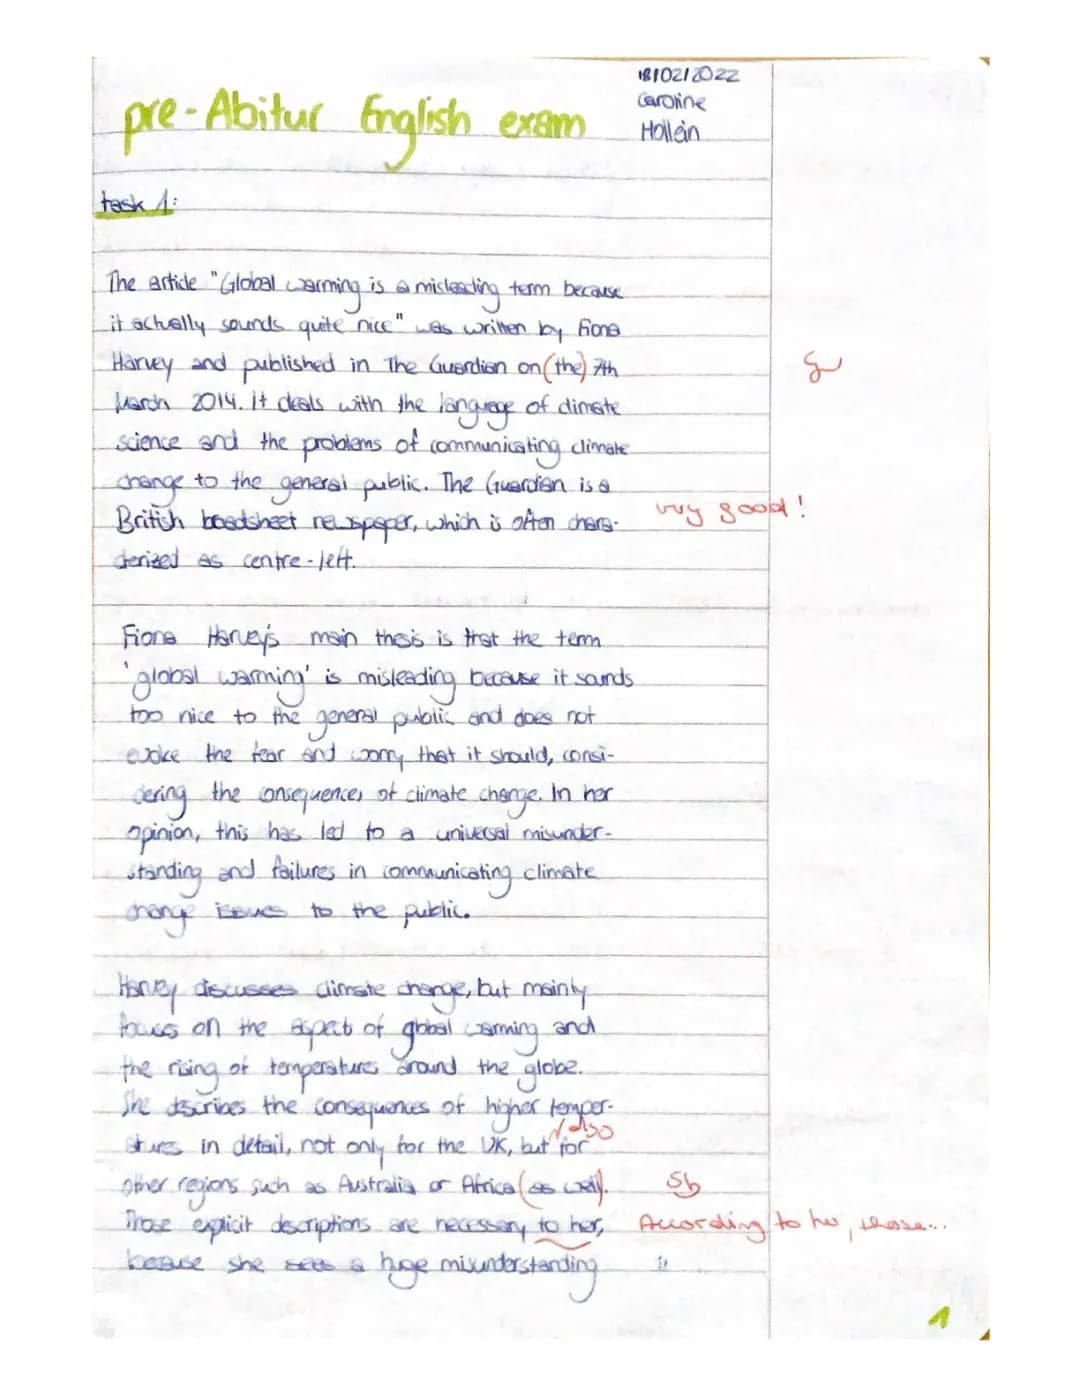 18/02/2022
Caroline
Hollein
pre-Abitur English exam
task 1:
The article "Global warming is a misleading term because
it actually sounds quite nice" was written by Fiona
Harvey and published in The Guardian on (the) 7th
March 2014. It deals with the language of climate
science and the problems of communicating climate
change to the general public. The Guardian is a
British boadsheet newspaper, which is often chara-
very good!
cterized as centre-left.
Fiona Harvey's main thesis is that the term
'global warming' is misleading because it sounds
too nice to the general public and does not
evoke the fear and worry that it should, consi-
dering the consequences of climate change. In her
opinion, this has led to a universal misunder-
standing and failures in communicating climate
change issues to the public.
Harvey discusses climate change, but mainly
focuses on the aspect of global warming and
the rising of temperatures around the globe.
She describes the consequences of higher temper-
also
atures in detail, not only for the UK, but for
other regions such as Australia or Africa (as well).
Sb
Those explicit descriptions are necessary to her,
According to her, those...
because she sees a huge misunderstanding
1